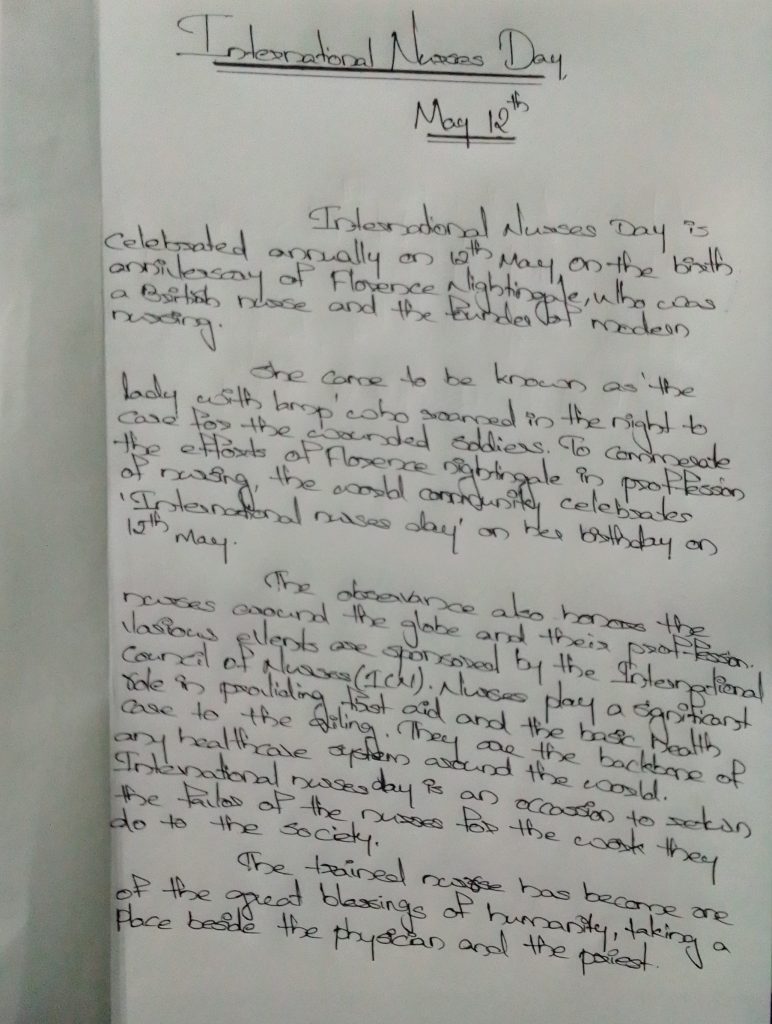 International Nurses Day
May 12th
International Nurses Day is
celebrated annually on 12th May, on the birth
anniversary of Florence Nightingale, who was
a British nurse and the funder of modern
nursing.
She came to be known as 'the
lady with lamp' who roamed in the night to
care for the wounded soldiers. To commerate
the efforts of Florence nightingale in proffession
of nursing, the world community celebrates
'International nurses day' on her birthday on
12th May.
The observance also honors the
nurses around the globe and their proffession.
Various events are sponsored by the International
Council of Nurses (ICN). Nurses play a significant
role in providing first aid and the basic health
care to the ailing. They are the backbone of
any healthcare system around the world.
International nurses day is an occassion to return
the favor of the nurses for the work they
do to the society.
The trained nurse has become one
of the great blessings of humanity, taking a
place beside the physician and the priest.